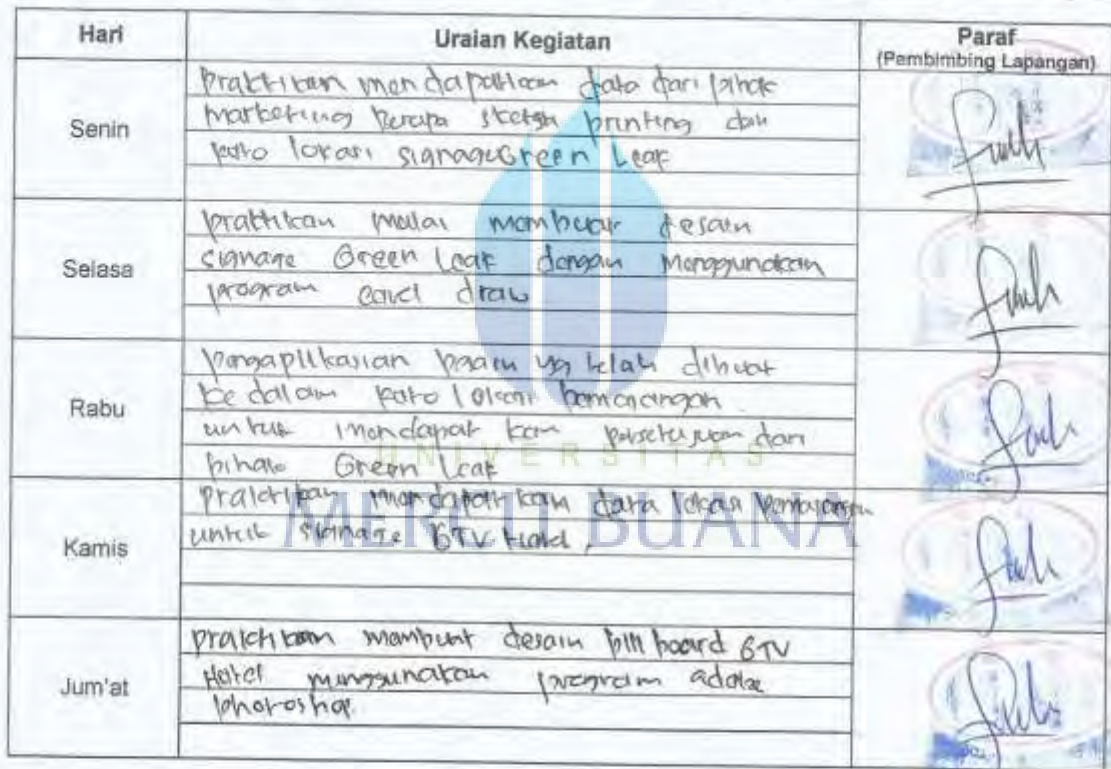 Hari Uraian Kegiatan Paraf
(Pembimbing Lapangan)
Senin
Praktikan mendapatkan data dari pihak
marketing berapa sketsa printing dan
foto lokasi signage Green Leaf
Selasa
praktikan mulai membuat desain
signage Green Leaf dengan menggunakan
program corel draw
Rabu
pengaplikasian yg telah dibuat
ke dalam foto lokasi pemasangan
untuk mendapatkan persetujuan dari
pihak Green Leaf
UNIVERSITAS
MERCU BUANA
Kamis
Praktikan mendapatkan data lokasi pemasangan
untuk signage GTV Hotel
Jum'at
praktikan membuat desain bill board GTV
Hotel menggunakan program adobe
photoshop.